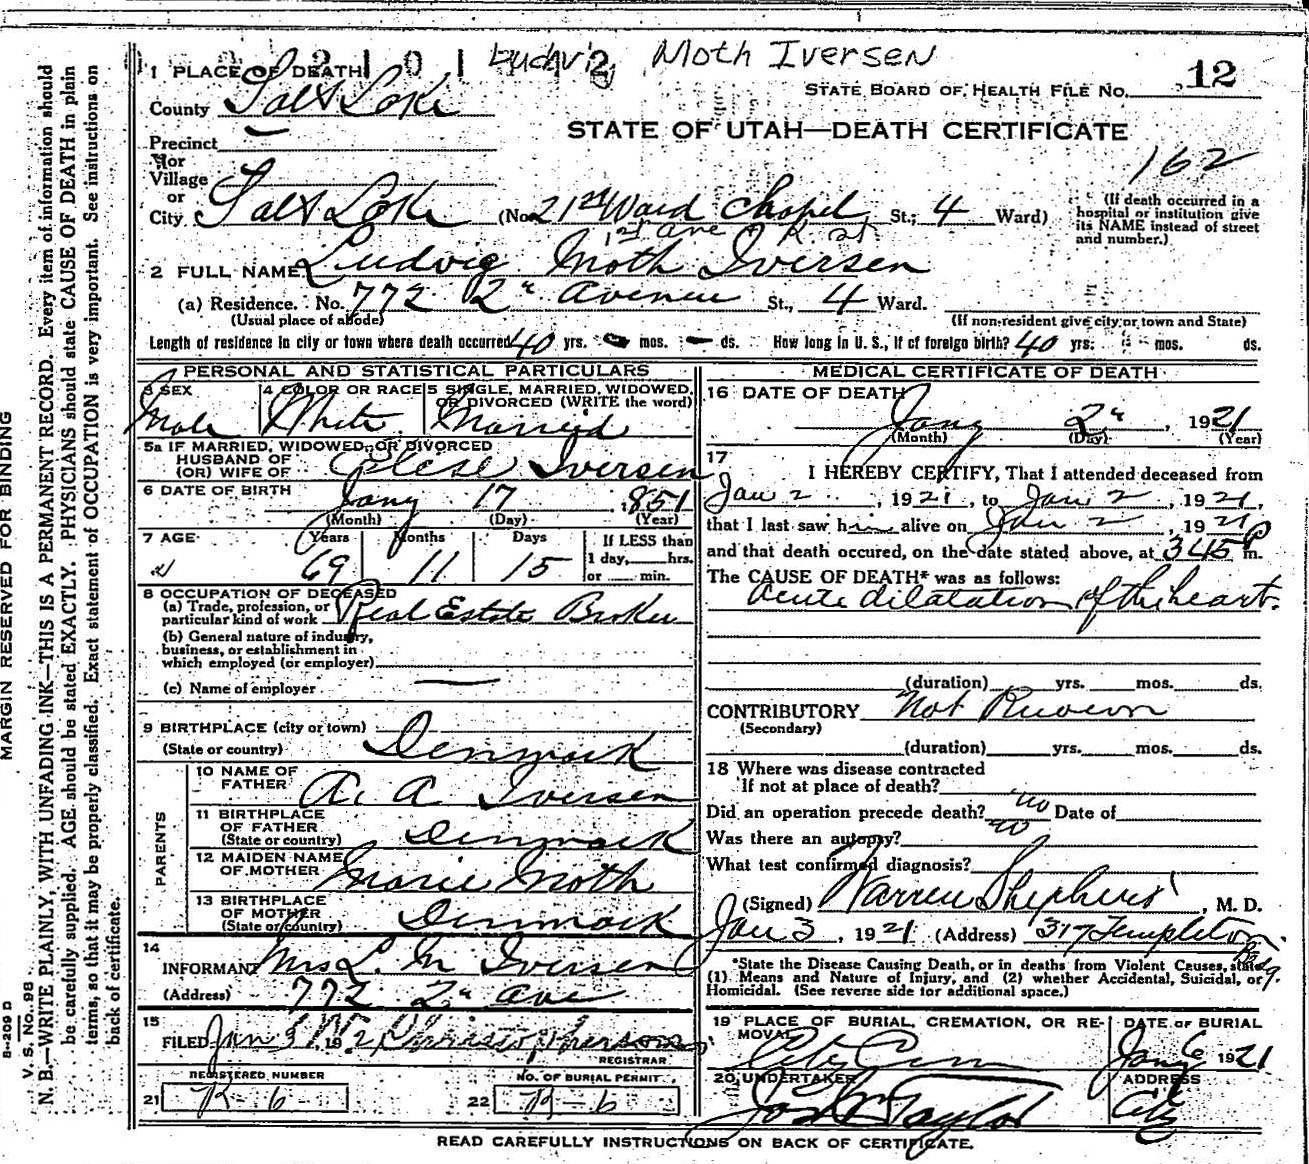 Moth Iversen
12
1 PLACE OF DEATH
STATE BOARD OF HEALTH FILE NO.
County Salt Lake
STATE OF UTAH—DEATH CERTIFICATE
Precinct
162
or
Village
or
City Salt Lake (No. 21st Ward Chapel St.; 4 Ward)
1st Ave & K. St.
(If death occurred in a
hospital or institution give
its NAME instead of street
and number.)
2 FULL NAME Ludvig Moth Iversen
(a) Residence. No. 772 2" Avenue St., 4 Ward.
(Usual place of abode)
(If non-resident give city or town and State)
Length of residence in city or town where death occurred 40 yrs. — mos. — ds. How long in U. S., if of foreign birth? 40 yrs. mos. ds.
PERSONAL AND STATISTICAL PARTICULARS
3 SEX
Male
4 COLOR OR RACE
White
5 SINGLE, MARRIED, WIDOWED,
OR DIVORCED (WRITE the word)
Married
5a IF MARRIED, WIDOWED, OR DIVORCED
HUSBAND OF
(OR) WIFE OF Elese Iversen
6 DATE OF BIRTH
Jany 17 1851
(Month) (Day) (Year)
7 AGE
Years Months Days
69 11 15
If LESS than
1 day, hrs.
or min.
8 OCCUPATION OF DECEASED
(a) Trade, profession, or
particular kind of work Real Estate Broker
(b) General nature of industry,
business, or establishment in
which employed (or employer)
(c) Name of employer —
9 BIRTHPLACE (city or town)
(State or country) Denmark
PARENTS
10 NAME OF
FATHER A. A Iversen
11 BIRTHPLACE
OF FATHER
(State or country) Denmark
12 MAIDEN NAME
OF MOTHER Marie Moth
13 BIRTHPLACE
OF MOTHER
(State or country) Denmark
14
INFORMANT Mrs L. M Iversen
(Address) 772 2" Ave
15
FILED Jan 3 192
REGISTRAR
REGISTERED NUMBER
21 B-6
NO. OF BURIAL PERMIT
22 B-6
MEDICAL CERTIFICATE OF DEATH
16 DATE OF DEATH
Jany 2" , 1921
(Month) (Day) (Year)
17
I HEREBY CERTIFY, That I attended deceased from
Jan 2 , 1921, to Jan 2 , 1921,
that I last saw him alive on Jan 2 , 1921
and that death occured, on the date stated above, at 345 P m.
The CAUSE OF DEATH* was as follows:
Acute dilatation of the heart.
(duration) yrs. mos. ds.
CONTRIBUTORY Not Known
(Secondary)
(duration) yrs. mos. ds.
18 Where was disease contracted
If not at place of death?
Did an operation precede death? no Date of
Was there an autopsy? no
What test confirmed diagnosis?
(Signed) Warren Shepherd , M. D.
Jan 3 , 1921 (Address) 317 Templeton
Bldg.
*State the Disease Causing Death, or in deaths from Violent Causes, state
(1) Means and Nature of Injury, and (2) whether Accidental, Suicidal, or
Homicidal. (See reverse side for additional space.)
19 PLACE OF BURIAL, CREMATION, OR RE-
MOVAL
City Cem
DATE OF BURIAL
Jany 6 1921
20 UNDERTAKER
Jos Wm Taylor
ADDRESS
City
READ CAREFULLY INSTRUCTIONS ON BACK OF CERTIFICATE.
MARGIN RESERVED FOR BINDING
N. B.—WRITE PLAINLY, WITH UNFADING INK—THIS IS A PERMANENT RECORD. Every item of information should
be carefully supplied. AGE should be stated EXACTLY. PHYSICIANS should state CAUSE OF DEATH in plain
terms, so that it may be properly classified. Exact statement of OCCUPATION is very important. See instructions on
back of certificate.
V. S. No. 98
B-209 D